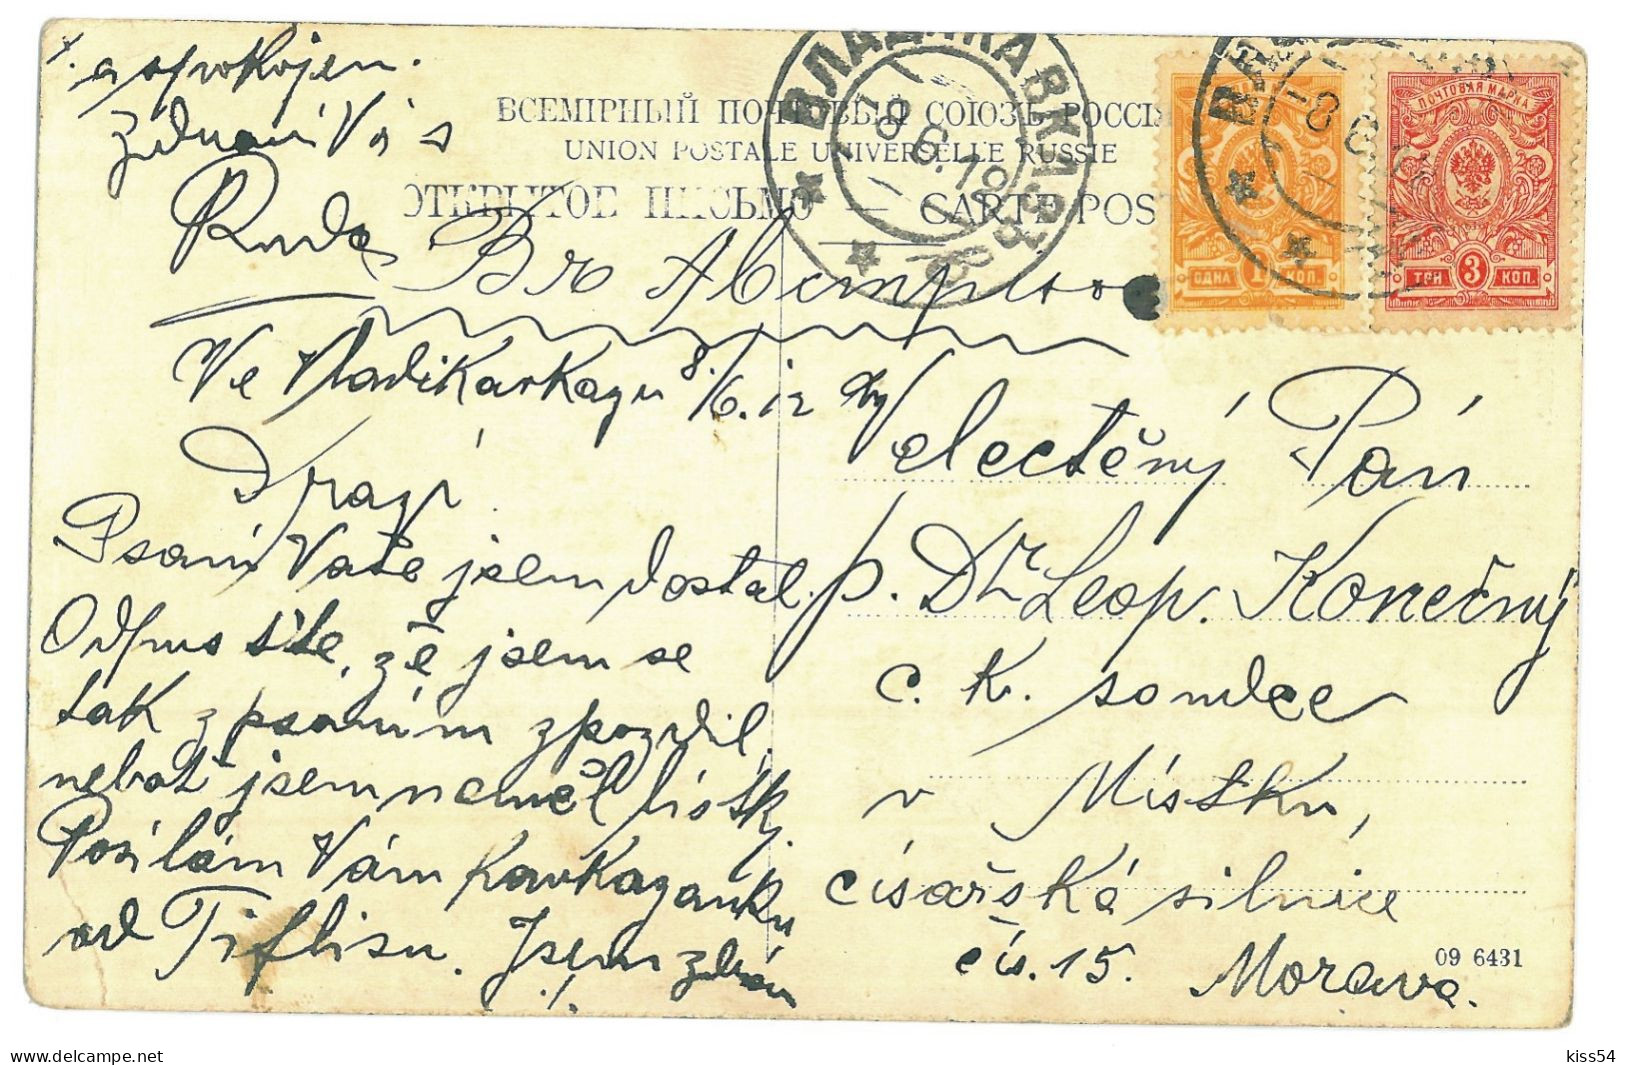 a spokojen.
Zdraví Vás
Ruda
ВСЕМIРНЫЙ ПОЧТОВЫЙ СОЮЗЪ РОССIЯ
UNION POSTALE UNIVERSELLE RUSSIE
ОТКРЫТОЕ ПИСЬМО — CARTE POS
ВЛАДИКАВКАЗЪ
8 6 12
ПОЧТОВАЯ МАРКА
ОДНА 1 КОП.
ТРИ 3 КОП.
Ve Vladikavkazu 8./6. 12
Drazí!
Psaní Vaše jsem dostal.
Odpusťte, že jsem se
tak z psaním zpozdil,
neboť jsem neměl lístky.
Posílám Vám Kavkazanku
od Tiflisu. Jsem zdráv
electěný Pán
p. Dr. Leop. Konečný
c. k. soudce
v Místku,
císařská silnice
čís. 15. Morava.
09 6431
kiss54